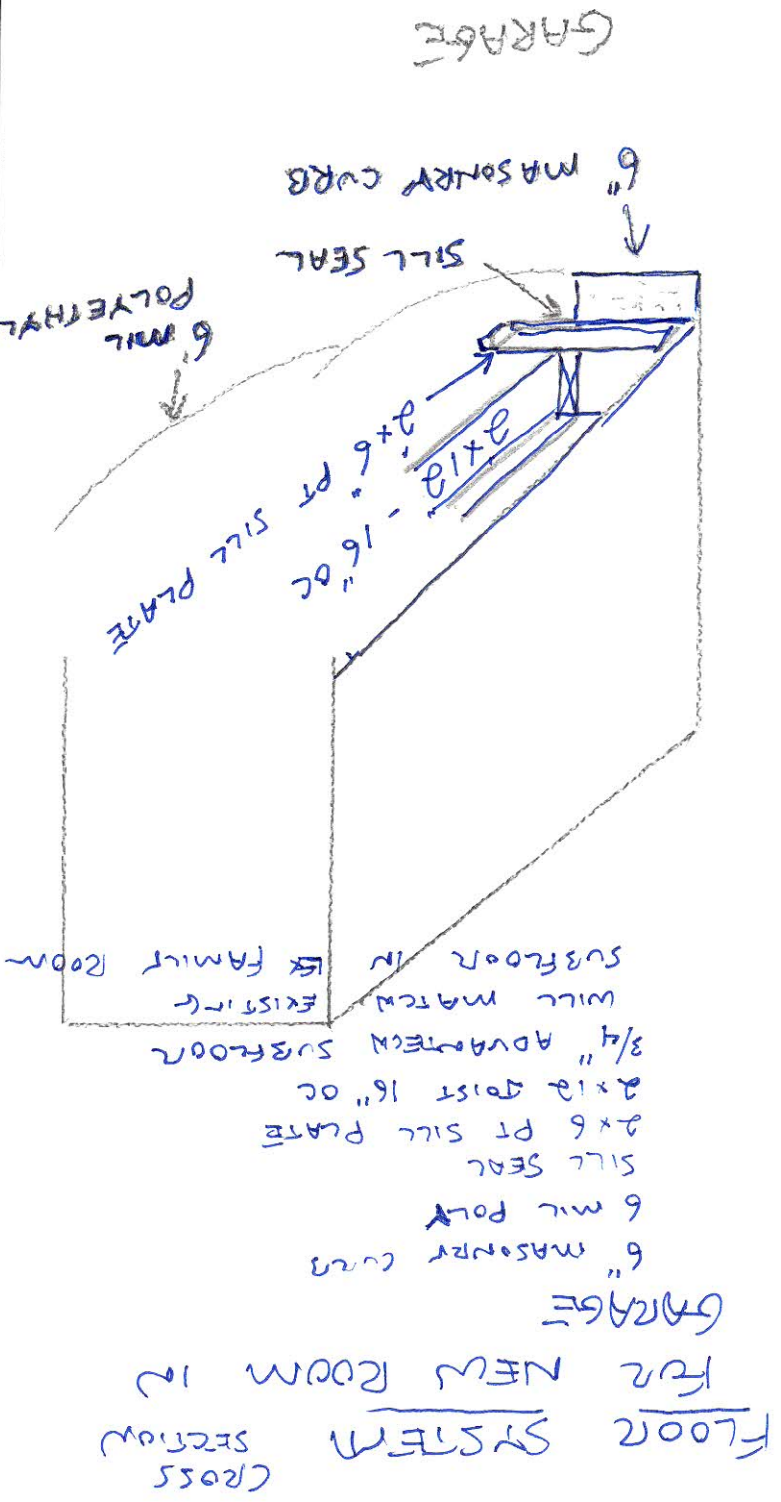 CROSS
SECTION
FLOOR SYSTEM
FOR NEW ROOM IN
GARAGE
6" MASONRY CURB
6 MIL POLY
SILL SEAL
2x6 PT SILL PLATE
2x12 JOIST 16" OC
3/4" ADVANTECH SUBFLOOR
WILL MATCH EXISTING
SUBFLOOR IN EX FAMILY ROOM
2x6" PT SILL PLATE
2x12" - 16" OC
6 MIL
POLYETHYL
SILL SEAL
6" MASONRY CURB
GARAGE